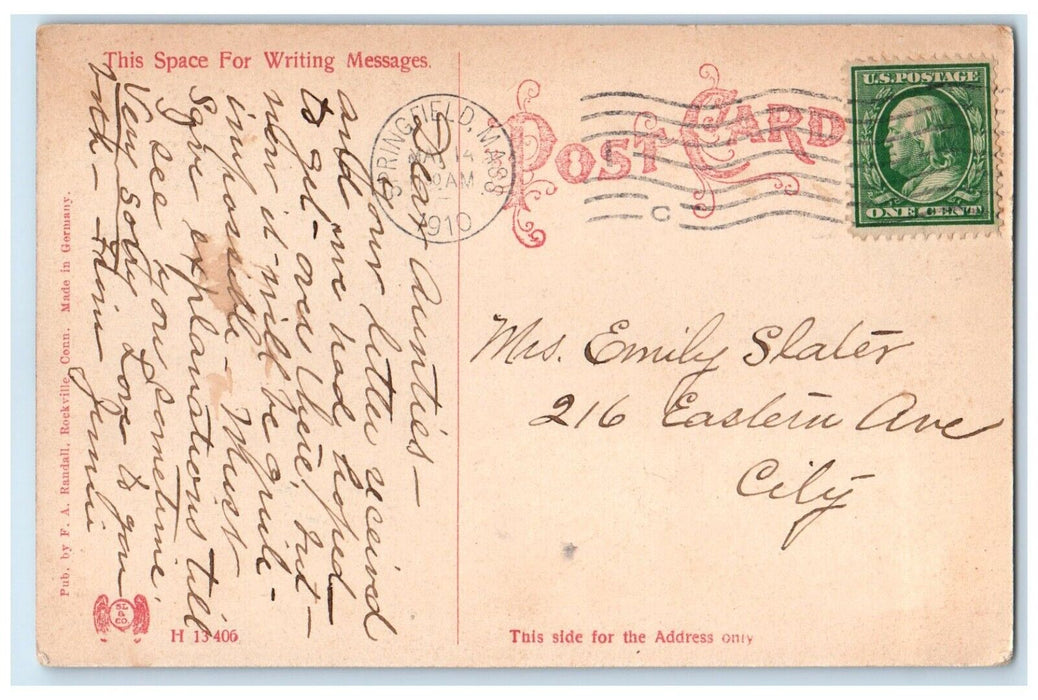 This Space For Writing Messages.
POST CARD
U.S. POSTAGE
ONE CENT
SPRINGFIELD, MASS
14
AM
1910
C
Dear Aunties –
Your letter received
and we had hoped
to get over there, but –
now it will be quite –
impossible – Must
save explanations till
I see you sometime.
Very sorry Love to you
both –
Jennie
Mrs. Emily Slater
216 Eastern Ave
City
Pub. by F. A. Randall, Rockville, Conn. Made in Germany.
SL
& CO.
H 13406
This side for the Address only